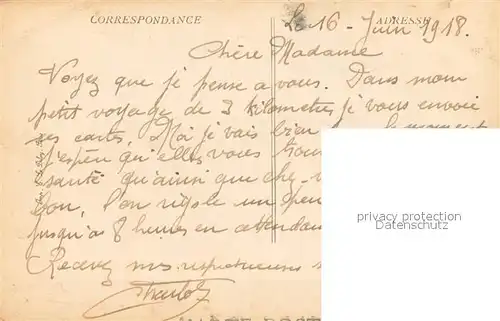 CORRESPONDANCE
ADRESSE
Le 16 - Juin 1918.
Chère Madame
Voyez que je pense a vous. Dans mom
petit voyage de 3 kilometres je vous envoie
ses cartes. Moi je vais bien
J'espère qu'elles vous
santé qu'ainsi que chez
Bon, l'on rigole un peu
jusqu'a 8 heures en attendan
Recevez mes respectueuses
privacy protection
Datenschutz